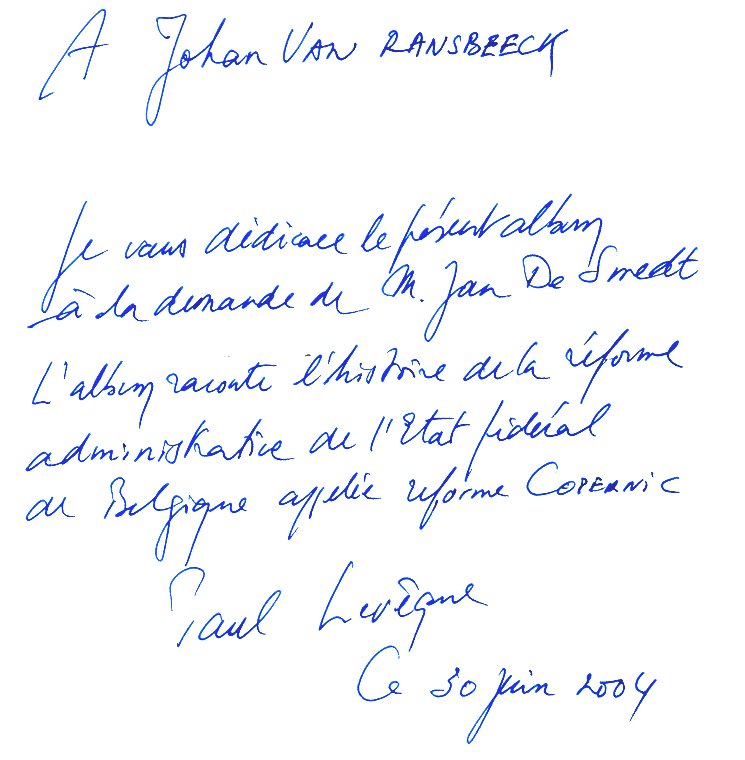 A Johan VAN RANSBEECK
Je vous dédicace le présent album
à la demande de M. Jan De Smedt
L'album raconte l'histoire de la réforme
administrative de l'Etat fédéral
de Belgique appelée réforme COPERNIC
Paul Levêque
Ce 30 juin 2004